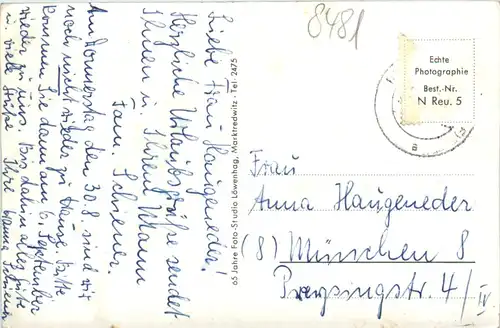 8481
Liebe Frau Haugeneder!
Herzliche Urlaubsgrüße sendet
Ihnen u. Ihrem Mann
Fam. Schiener.
Am Donnerstag den 30.8. sind wir
noch nicht wieder zu Hause. Bitte
kommen Sie dann am 6. September
wieder zu uns. Bis dahin alles Gute
u. viele Grüße Ihre
65 Jahre Foto-Studio Löwenhag, Marktredwitz · Tel. 2475
Echte
Photographie
Best.-Nr.
N Reu. 5
Frau
Anna Haugeneder
(8) München 8
Preysingstr. 4/IV